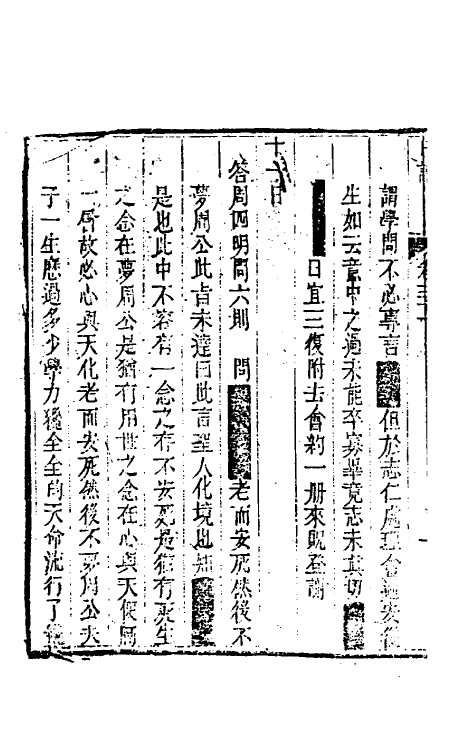 謂學問不必專言但於志仁處理會過安從
生如云意中之過未能卒寡畢竟志未真切
日宜三復附去會約一册來貺登謝
十一日
答周四明問六則　問老而安死然後不
夢周公此旨未達曰此言聖人化境也
是也此中不容有一念之存不安死是猶有死生
之念在夢周公是猶有用世之念在心與天便隔
一層故必心與天化老而安死然後不夢周公夫
子一生應過多少學力後全全的天命流行了